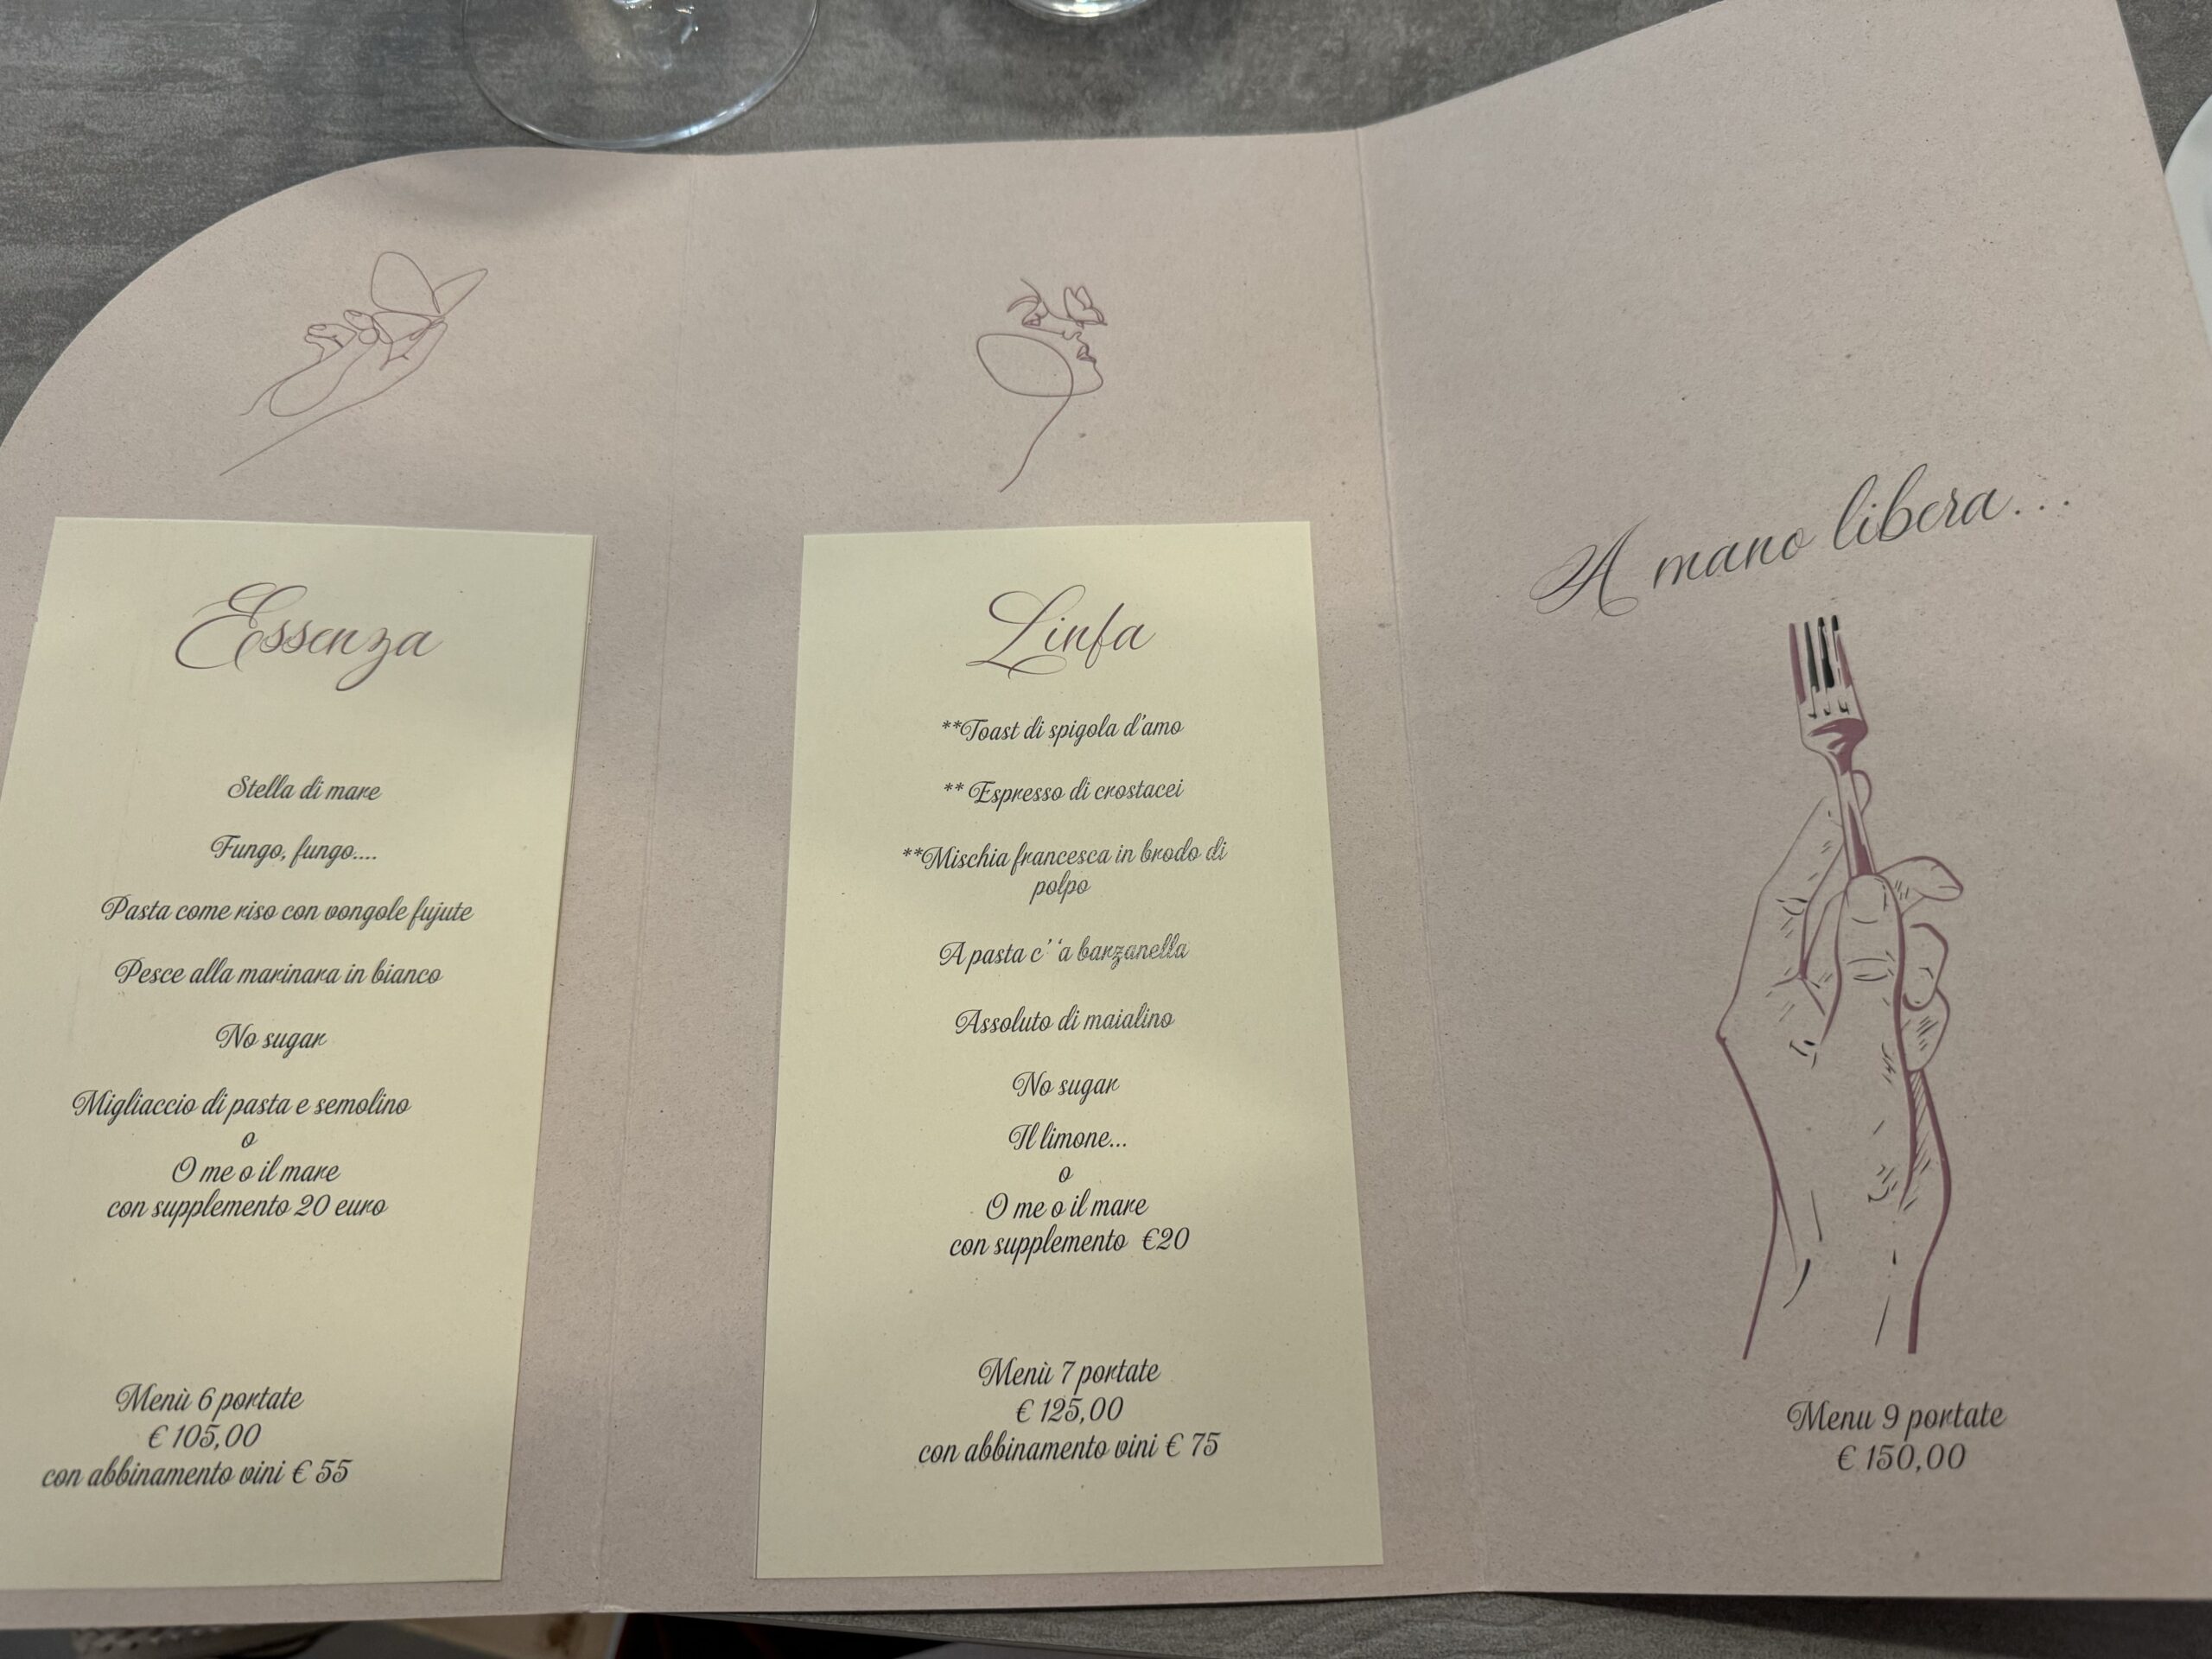 Essenza
Stella di mare
Fungo, fungo....
Pasta come riso con vongole fujute
Pesce alla marinara in bianco
No sugar
Migliaccio di pasta e semolino
o
O me o il mare
con supplemento 20 euro
Menù 6 portate
€ 105,00
con abbinamento vini € 55
Linfa
**Toast di spigola d'amo
** Espresso di crostacei
**Mischia francesca in brodo di
polpo
A pasta c' 'a barzanella
Assoluto di maialino
No sugar
Il limone...
o
O me o il mare
con supplemento €20
Menù 7 portate
€ 125,00
con abbinamento vini € 75
A mano libera...
Menu 9 portate
€ 150,00